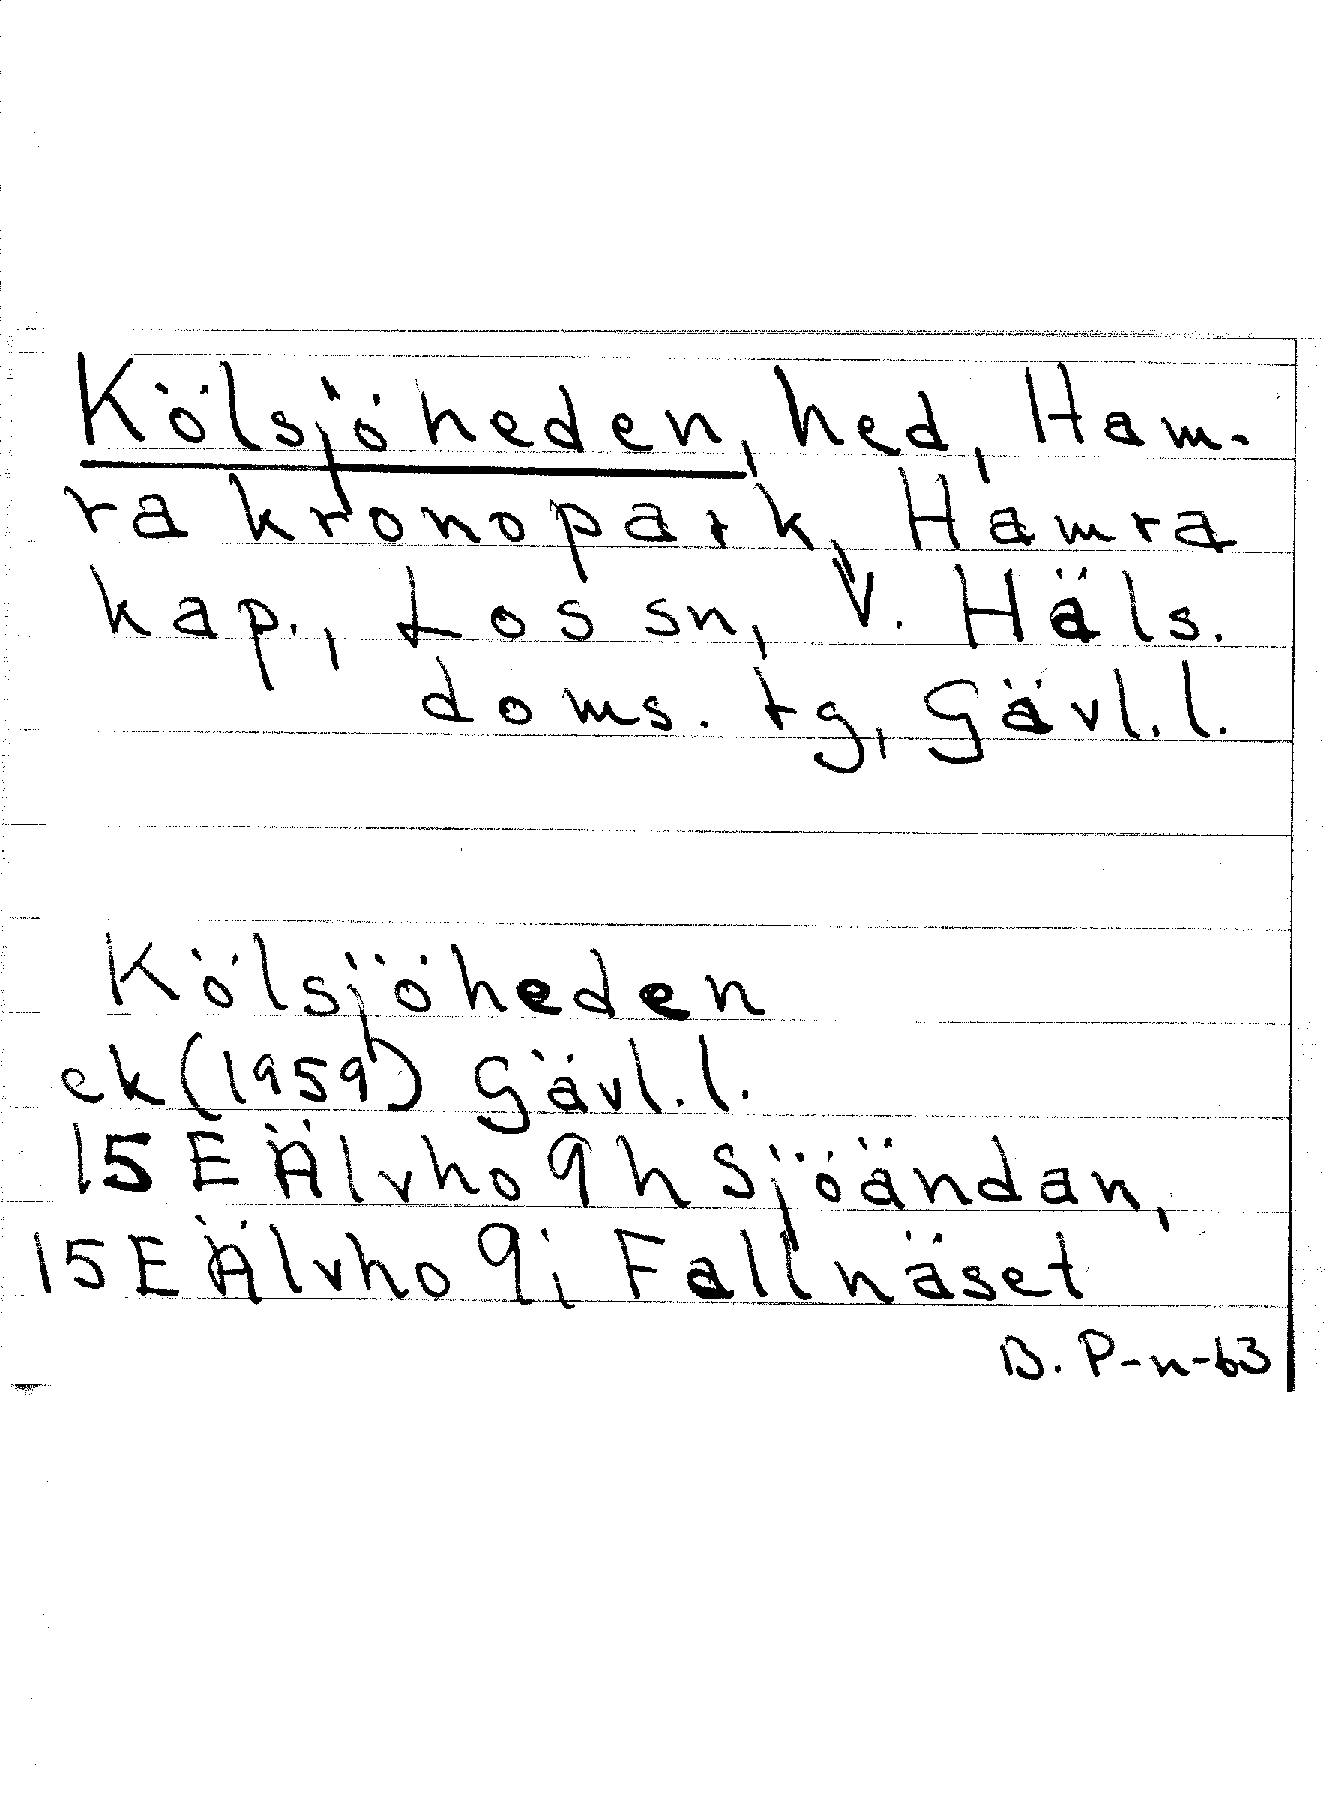 Kölsjöheden, hed, Ham-
ra kronopark, Hamra
kap., Los sn, V. Häls.
doms. tg, Gävl. l.
Kölsjöheden
ek (1959) Gävl. l.
15 E Älvho 9 h Sjöändan,
15 E Älvho 9 i Fallnäset
B. P-n-63